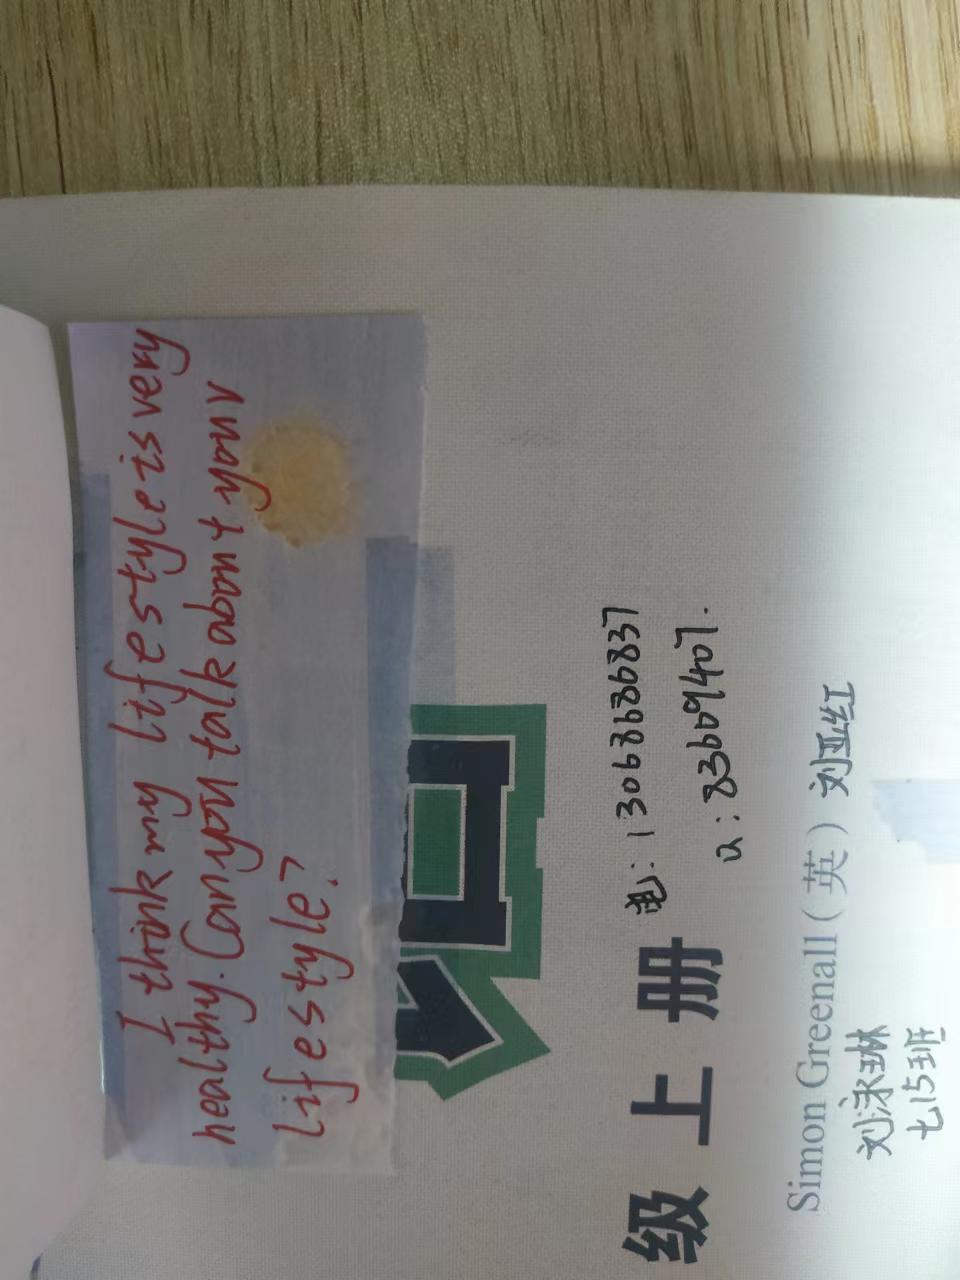 I think my lifestyle is very
healthy. Can you talk about your
lifestyle?
级上册
电: 13068686837
Q: 83609407.
Simon Greenall (英) 刘亚红
刘泳琳
七15班